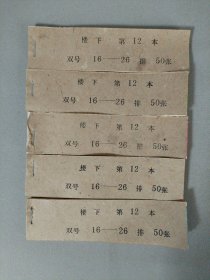 楼下 第12本
双号 16——26 排 50张
楼下 第12本
双号 16——26 排 50张
楼下 第12本
双号 16——26 排 50张
楼下 第12本
双号 16——26 排 50张
楼下 第12本
双号 16——26 排 50张